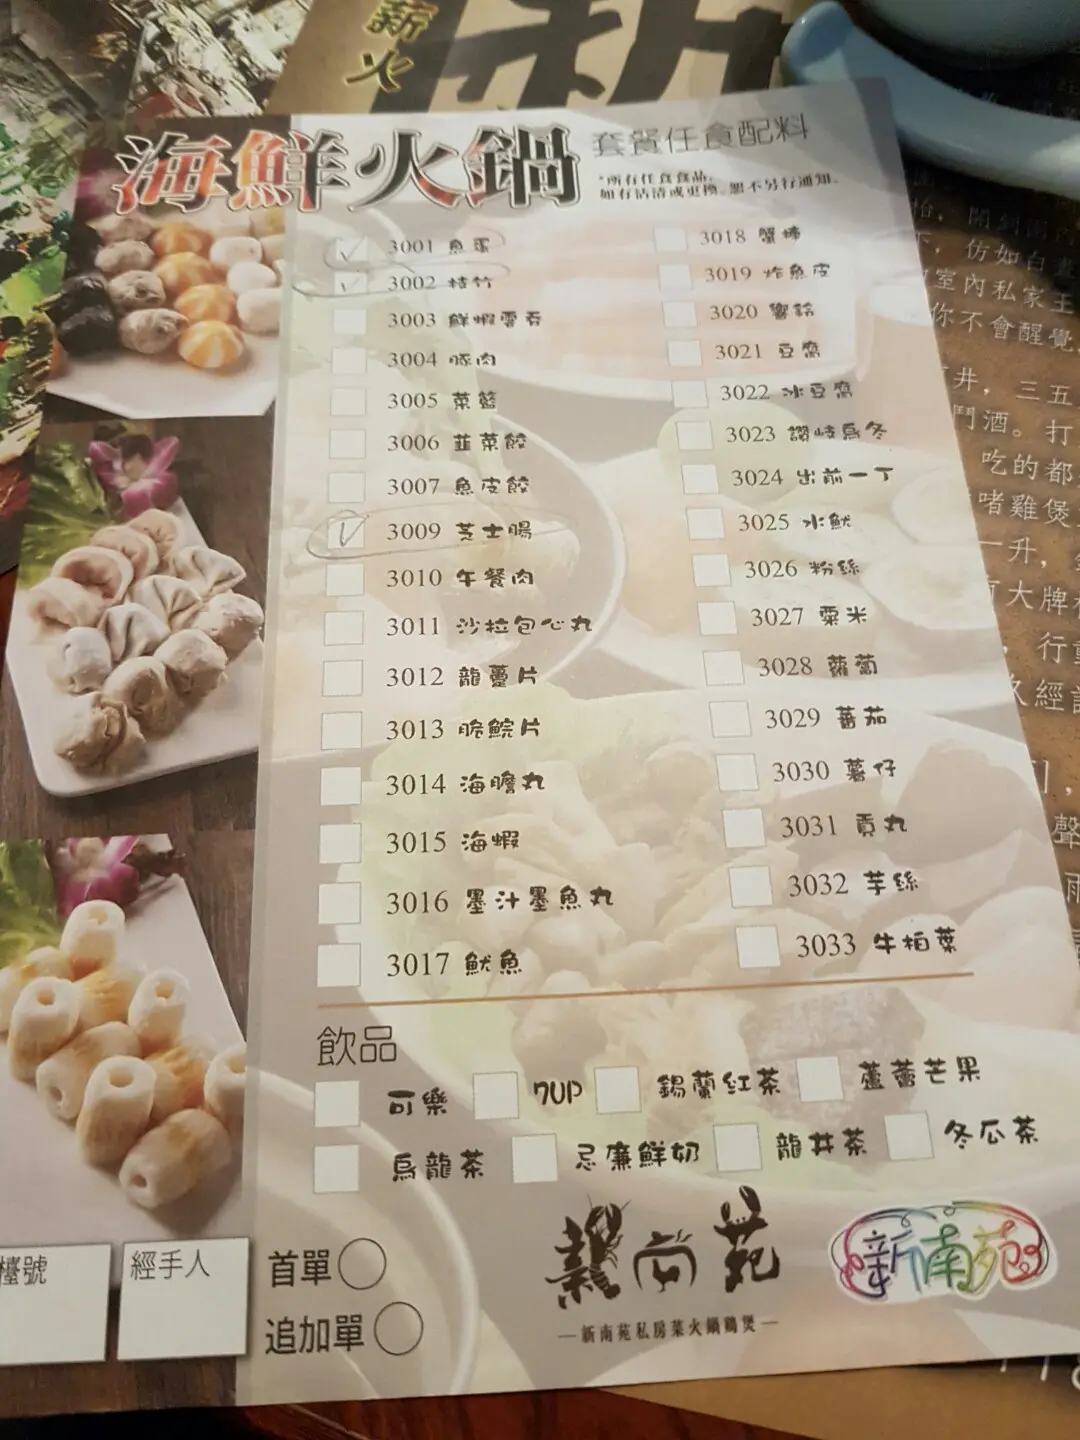 薪火
海鮮火鍋 套餐任食配料
*所有任食食品,
如有沽清或更換,恕不另行通知。
3001 魚蛋
3002 枝竹
3003 鮮蝦雲吞
3004 豚肉
3005 菜籃
3006 韮菜餃
3007 魚皮餃
3009 芝士腸
3010 午餐肉
3011 沙拉包心丸
3012 龍躉片
3013 脆鯇片
3014 海膽丸
3015 海蝦
3016 墨汁墨魚丸
3017 魷魚
3018 蟹棒
3019 炸魚皮
3020 響鈴
3021 豆腐
3022 冰豆腐
3023 讃岐烏冬
3024 出前一丁
3025 水魷
3026 粉絲
3027 粟米
3028 蘿蔔
3029 蕃茄
3030 薯仔
3031 貢丸
3032 芋絲
3033 牛柏葉
飲品
可樂 7UP 錫蘭紅茶 蘆薈芒果
烏龍茶 忌廉鮮奶 龍井茶 冬瓜茶
檯號
經手人
首單
追加單
新南苑
—新南苑私房菜火鍋鷄煲—
仿如白晝
室內私家王
你不會醒覺
井,三五
鬥酒。打
吃的都
啫雞煲
一升,
大牌
,行
久經